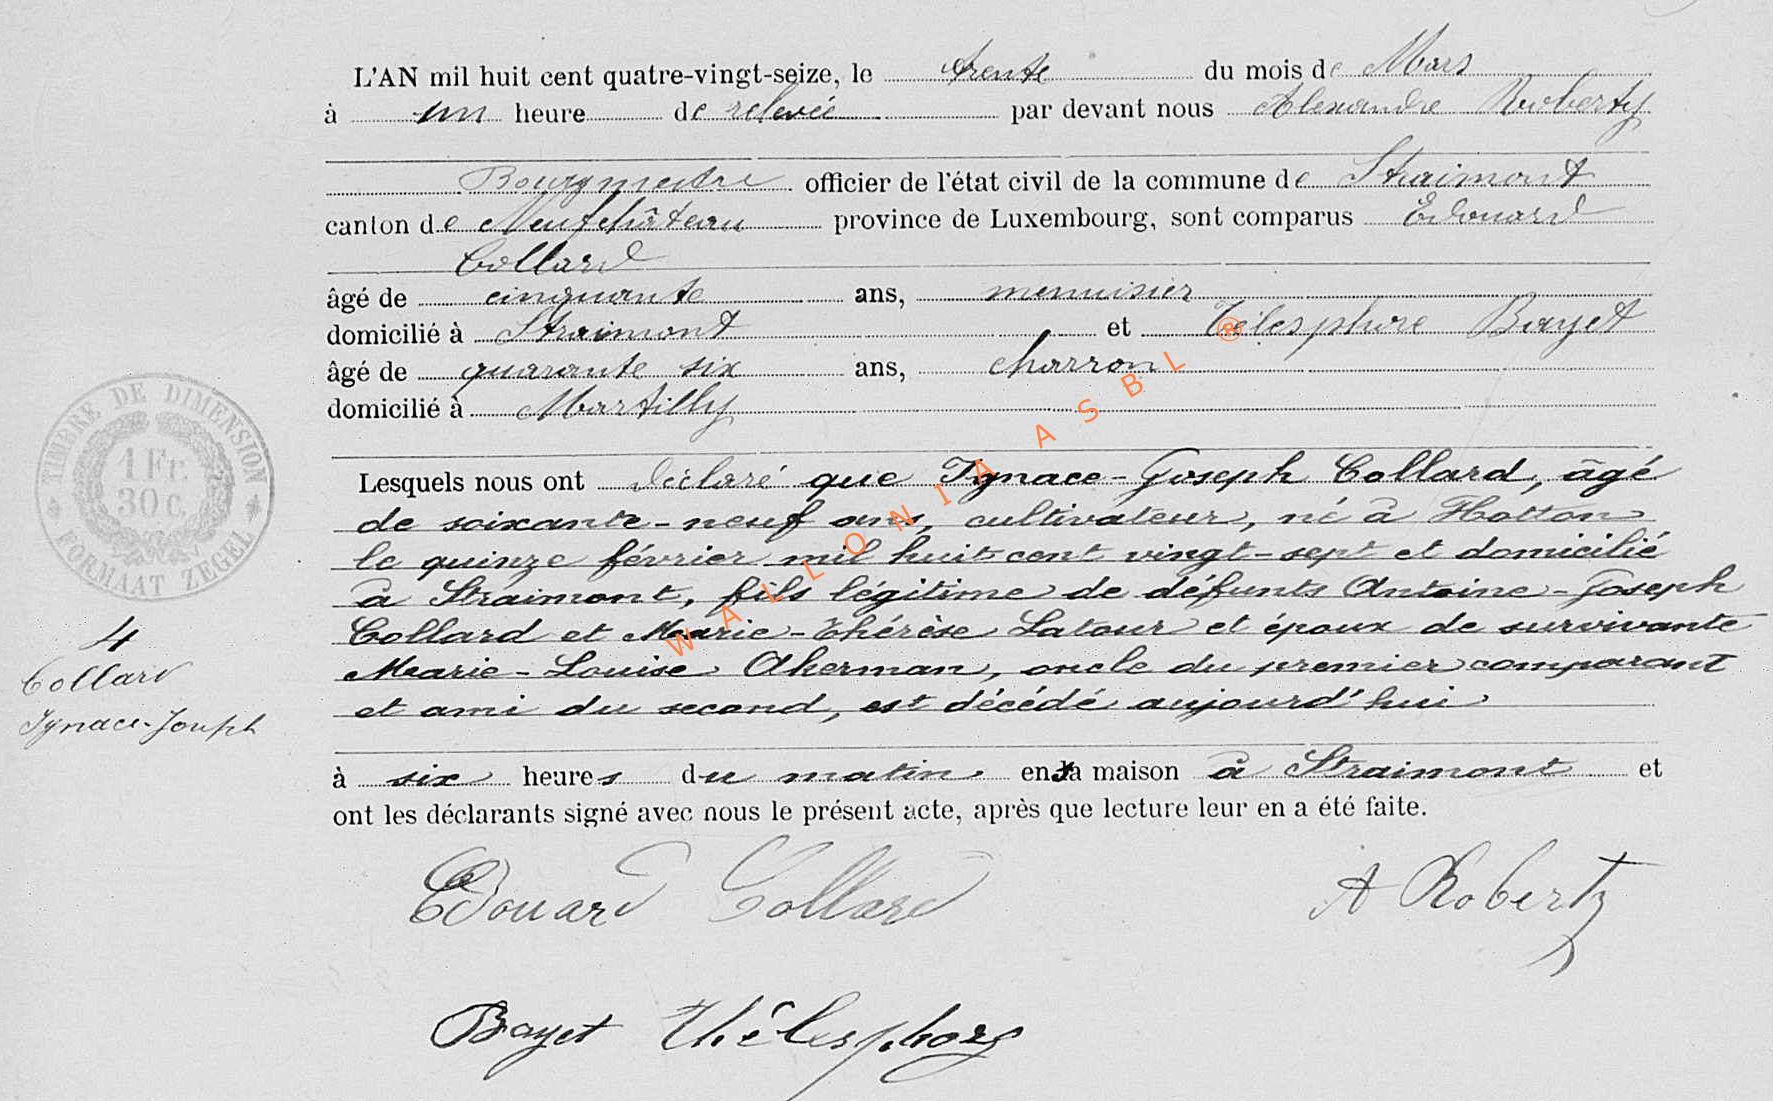 L'AN mil huit cent quatre-vingt-seize, le trente du mois de Mars
à un heure de relevée par devant nous Alexandre Roberty
Bourgmestre officier de l'état civil de la commune de Straimont
canton de Neufchâteau province de Luxembourg, sont comparus Edouard
Collard
âgé de cinquante ans, menuisier
domicilié à Straimont et Télesphore Bayet
âgé de quarante six ans, charron
domicilié à Martilly
Lesquels nous ont déclaré que Ignace-Joseph Collard, âgé
de soixante-neuf ans, cultivateur, né à Hotton
le quinze février mil huit cent vingt-sept et domicilié
à Straimont, fils légitime de défunts Antoine-Joseph
Collard et Marie-Thérèse Latour et époux de survivante
Marie-Louise Akerman, oncle du premier comparant
et ami du second, est décédé aujourd'hui
à six heures du matin en sa maison à Straimont et
ont les déclarants signé avec nous le présent acte, après que lecture leur en a été faite.
Edouard Collard A Robertz
Bayet Thélesphore
4
Collard
Ignace-Joseph
TIMBRE DE DIMENSION
1 Fr.
30 c.
FORMAAT ZEGEL
WALLONIA ASBL ®